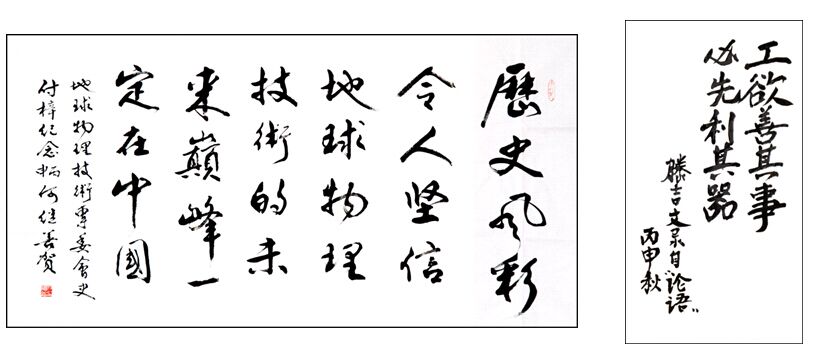 歷史风彩
令人坚信
地球物理
技術的未
来巔峰一
定在中國
地球物理技術專委會史
付梓纪念丙申何继善贺
工欲善其事
必先利其器
滕吉文录自论语
丙申秋